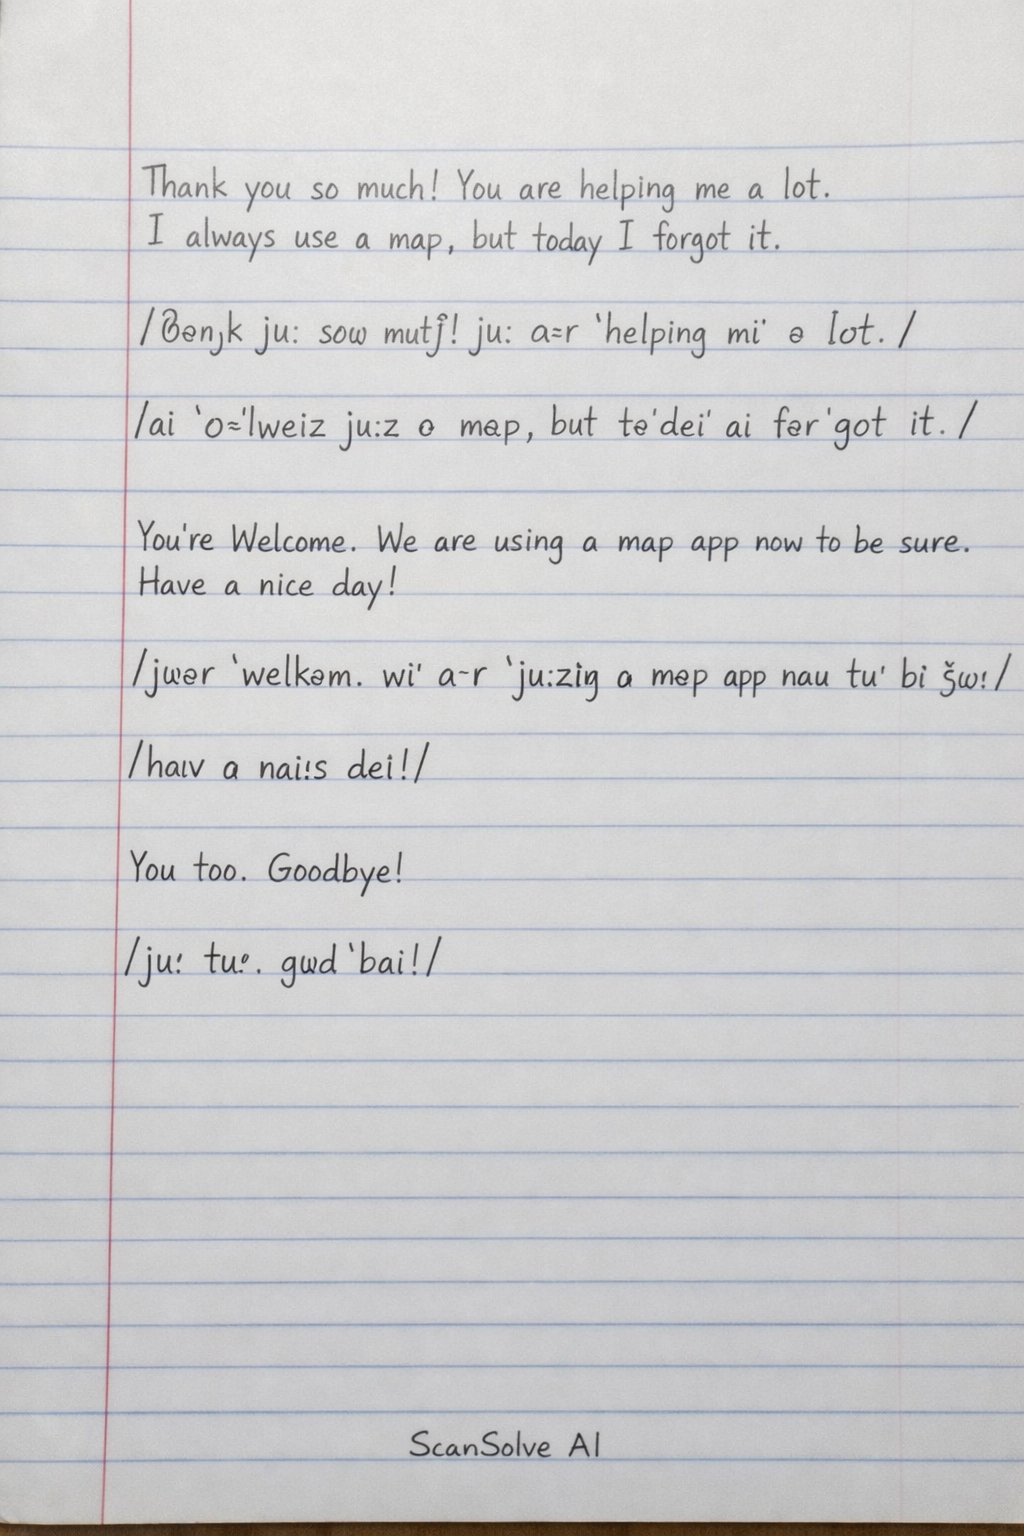 Thank you so much! You are helping me a lot.
I always use a map, but today I forgot it.
/θənjk ju: sow mutʃ! ju: a=r 'helping mi' ə lot. /
/ai 'o≈'lweiz ju:z o məp, but tə'dei' ai fər'got it. /
You're Welcome. We are using a map app now to be sure.
Have a nice day!
/jwər 'welkəm. wi' a-r 'ju:zig a məp app nau tu' bi šw: /
/haıv a nai:s dei!/
You too. Goodbye!
/ju: tu:. gwd 'bai!/
ScanSolve AI